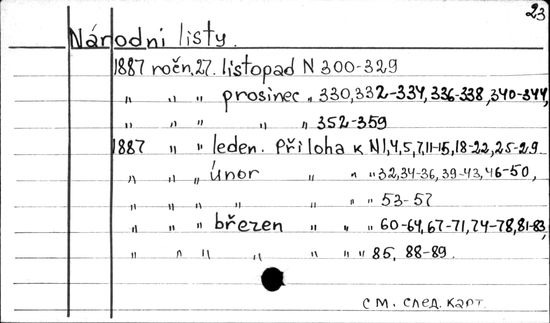 23
Národni listy.
1887 ročn. 27. listopad N 300-329
" " " prosinec " 330, 332-334, 336-338, 340-344,
" " " " " 352-359
1887 " " leden. Příloha k N 1,4,5,7,11-15,18-22,25-29
" " " únor " " " 32,34-36,39-43,46-50,
" " " " " " " 53-57
" " " březen " " " 60-64,67-71,74-78,81-83,
" " " " " " " 85, 88-89.
см. след. карт.